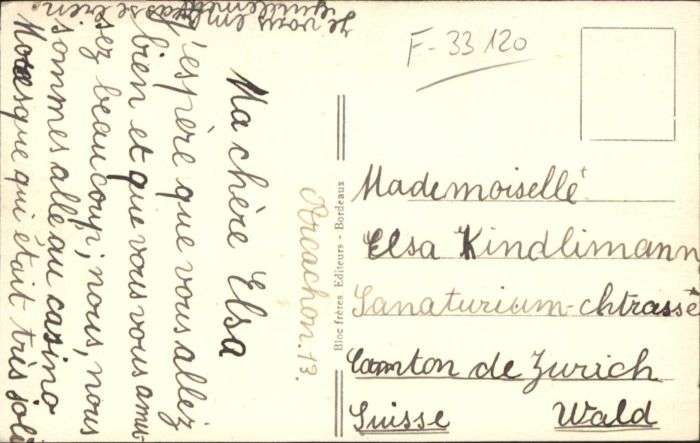 Ma chère Elsa
j'espère que vous allez
bien et que vous vous amu-
sez beaucoup; nous, nous
sommes allé au casino
Moresque qui était très joli
Je vous em
rien.
F-33120
Arcachon. 13.
Bloc frères Editeurs - Bordeaux
Mademoiselle
Elsa Kindlimann
Sanaturium-chtrasse
Canton de Zurich
Suisse Wald